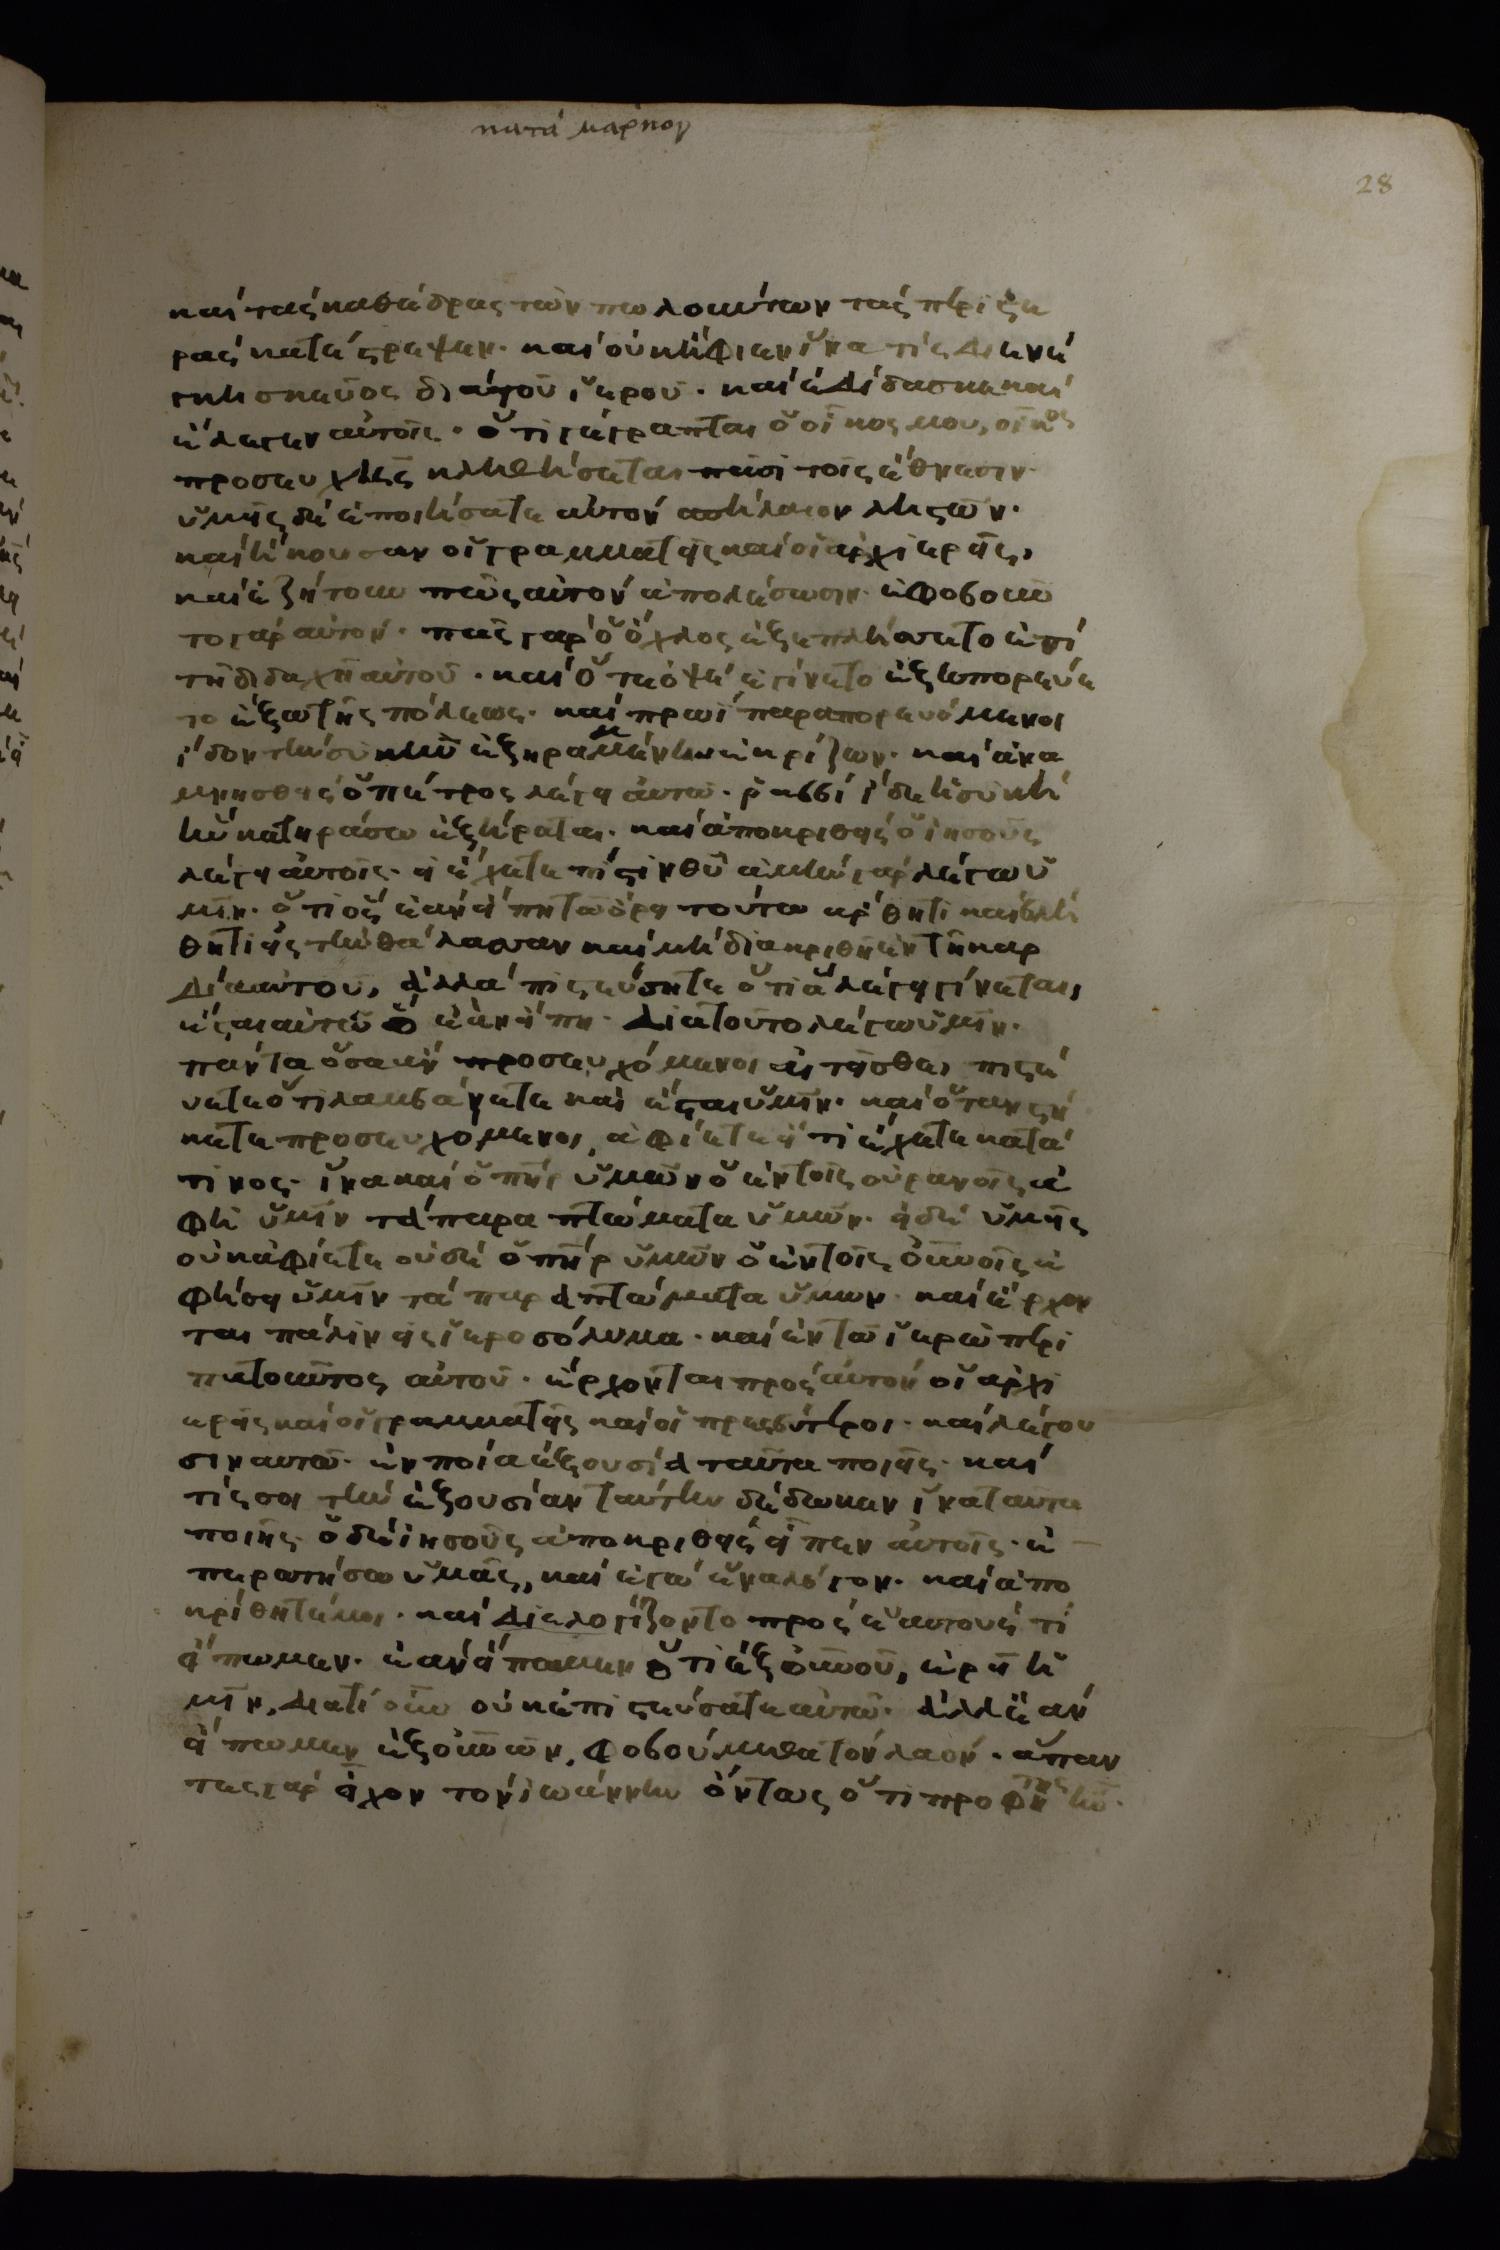 κατά μάρκον
28
καί τάς καθέδρας τῶν πωλούντων τάς περιστε
ράς κατέστρεψεν· καί οὐκ ἤφιεν ἵνα τίς διενέ
γκη σκεῦος διά τοῦ ἱεροῦ· καί ἐδίδασκε καί
ἔλεγεν αὐτοῖς· ὅτι γέγραπται ὁ οἶκος μου, οἶκος
προσευχῆς κληθήσεται πᾶσι τοῖς ἔθνεσιν·
ὑμεῖς δέ ἐποιήσατε αὐτόν σπήλαιον ληστῶν·
καί ἤκουσαν οἱ γραμματεῖς καί οἱ ἀρχιερεῖς,
καί ἐζήτουν πῶς αὐτόν ἀπολέσωσιν· ἐφοβοῦν
το γάρ αὐτόν· πᾶς γάρ ὁ ὄχλος ἐξεπλήσσετο ἐπί
τῆ διδαχῆ αὐτοῦ· καί ὅτε ὀψέ ἐγίνετο ἐξεπορεύε
το ἔξω τῆς πόλεως· καί πρωί παραπορευόμενοι
ἴδον τήν συκῆν ἐξηραμμένην ἐκ ριζῶν· καί ἀνα
μνησθείς ὁ πέτρος λέγει αὐτῶ· ῥαββί ἴδε ἡ συκῆ
ἥν κατηράσω ἐξήραται· καί ἀποκριθείς ὁ ἰησοῦς
λέγει αὐτοῖς· εἰ ἔχετε πίστιν θῦ ἀμήν γάρ λέγω ὑ
μῖν· ὅτι ὅς ἐάν εἴπη τῶ ὄρει τούτω ἄρθητι καί βλή
θητι εἰς τήν θάλασσαν καί μή διακριθῆ ἐν τῆ καρ
δία αὐτοῦ, ἀλλά πιστεύσητε ὅτι ἅ λέγει γίνεται,
ἔσται αὐτῶ ὅ ἐάν εἴπη· διά τοῦτο λέγω ὑμῖν·
πάντα ὅσα ἄν προσευχόμενοι αἰτεῖσθαι πιστεύ
ετε ὅτι λαμβάνετε καί ἔσται ὑμῖν· καί ὅταν στή
κετε προσευχόμενοι, ἀφίετε εἴ τι ἔχετε κατά
τινος· ἵνα καί ὁ πῆρ ὑμῶν ὁ ἐν τοῖς οὐρανοῖς ἀ
φῆ ὑμῖν τά παραπτώματα ὑμῶν· εἰ δέ ὑμεῖς
οὐκ ἀφίετε οὐδέ ὁ πῆρ ὑμῶν ὁ ἐν τοῖς οὐνοῖς ἀ
φήσει ὑμῖν τά παραπτώματα ὑμων· καί ἔρχον
ται πάλιν εἰς ἱεροσόλυμα· καί ἐν τῶ ἱερῶ περι
πατοῦντος αὐτοῦ· ἔρχονται πρός αὐτόν οἱ ἀρχι
ερεῖς καί οἱ γραμματεῖς καί οἱ πρεσβύτεροι· καί λέγου
σιν αυτῶ· ἐν ποία ἐξουσία ταῦτα ποιεῖς· καί
τίς σοι τήν ἐξουσίαν ταύτην δέδωκεν ἵνα ταῦτα
ποιῆς· ὁ δέ ἰησοῦς ἀποκριθείς εἶπεν αὐτοῖς· ἐ
περωτήσω ὑμᾶς, καί ἐγώ ἕνα λόγον· καί ἀπο
κρίθητέ μοι· καί διελογίζοντο πρός ἑαυτούς τί
εἴπωμεν· ἐάν εἴπωμεν ὅτι ἐξ οὐνοῦ, ἐρεῖ ἡ
μῖν, διατί οὖν οὐκ ἐπιστεύσατε αὐτῶ· ἀλλ' ἐάν
εἴπωμεν ἐξ ἀνων, φοβούμεθα τόν λαόν· ἅπαν
τες γάρ εἶχον τόν ἰωάννην ὄντως ὅτι προφήτης ἦν·